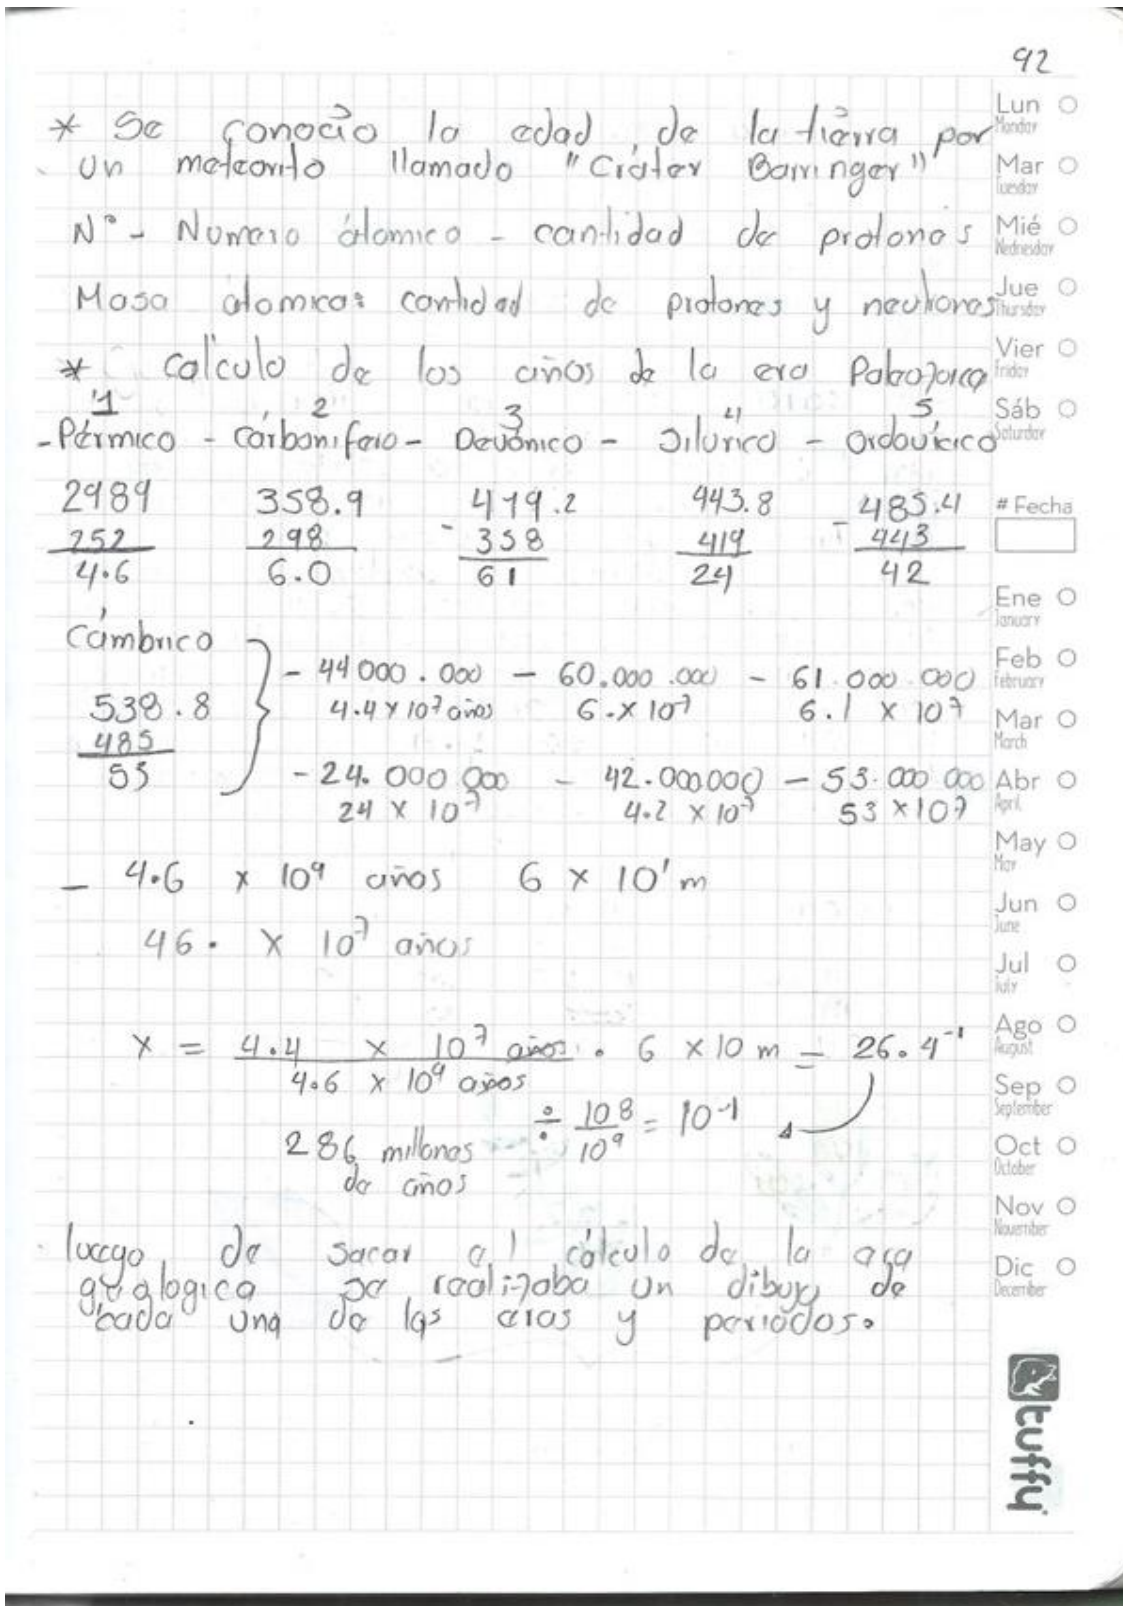 92
* Se conocio la edad de la tierra por
un meteorito llamado "Cráter Barringer"
N° - Numero átomico - cantidad de protones
Masa atomica: cantidad de protones y neutrones
* calculo de los años de la era Paleozoica
1 2 3 4 5
- Pérmico - Carbonifero - Devónico - Silurico - Ordovicico
2989 358.9 419.2 443.8 - 485.4
252 298 - 358 419 443
4.6 6.0 61 24 42
Cámbrico
538.8
485
53
- 44000.000 - 60.000.000 - 61.000.000
4.4 x 10⁷ años 6. x 10⁷ 6.1 x 10⁷
- 24.000 000 - 42.000000 - 53.000 000
24 x 10⁷ 4.2 x 10⁷ 53 x 10⁷
- 4.6 x 10⁹ años 6 x 10¹ m
46. x 10⁷ años
x = 4.4 x 10⁷ años . 6 x 10 m = 26.4⁻¹
4.6 x 10⁹ años
÷ 10⁸ = 10⁻¹
10⁹
286 millones
de años
luego de sacar el cálculo de la era
geologica se realizaba un dibujo de
cada una de las eras y periodos.
Lun
Monday
Mar
Tuesday
Mié
Wednesday
Jue
Thursday
Vier
Friday
Sáb
Saturday
# Fecha
Ene
January
Feb
February
Mar
March
Abr
April
May
May
Jun
June
Jul
July
Ago
August
Sep
September
Oct
October
Nov
November
Dic
December
tuffy